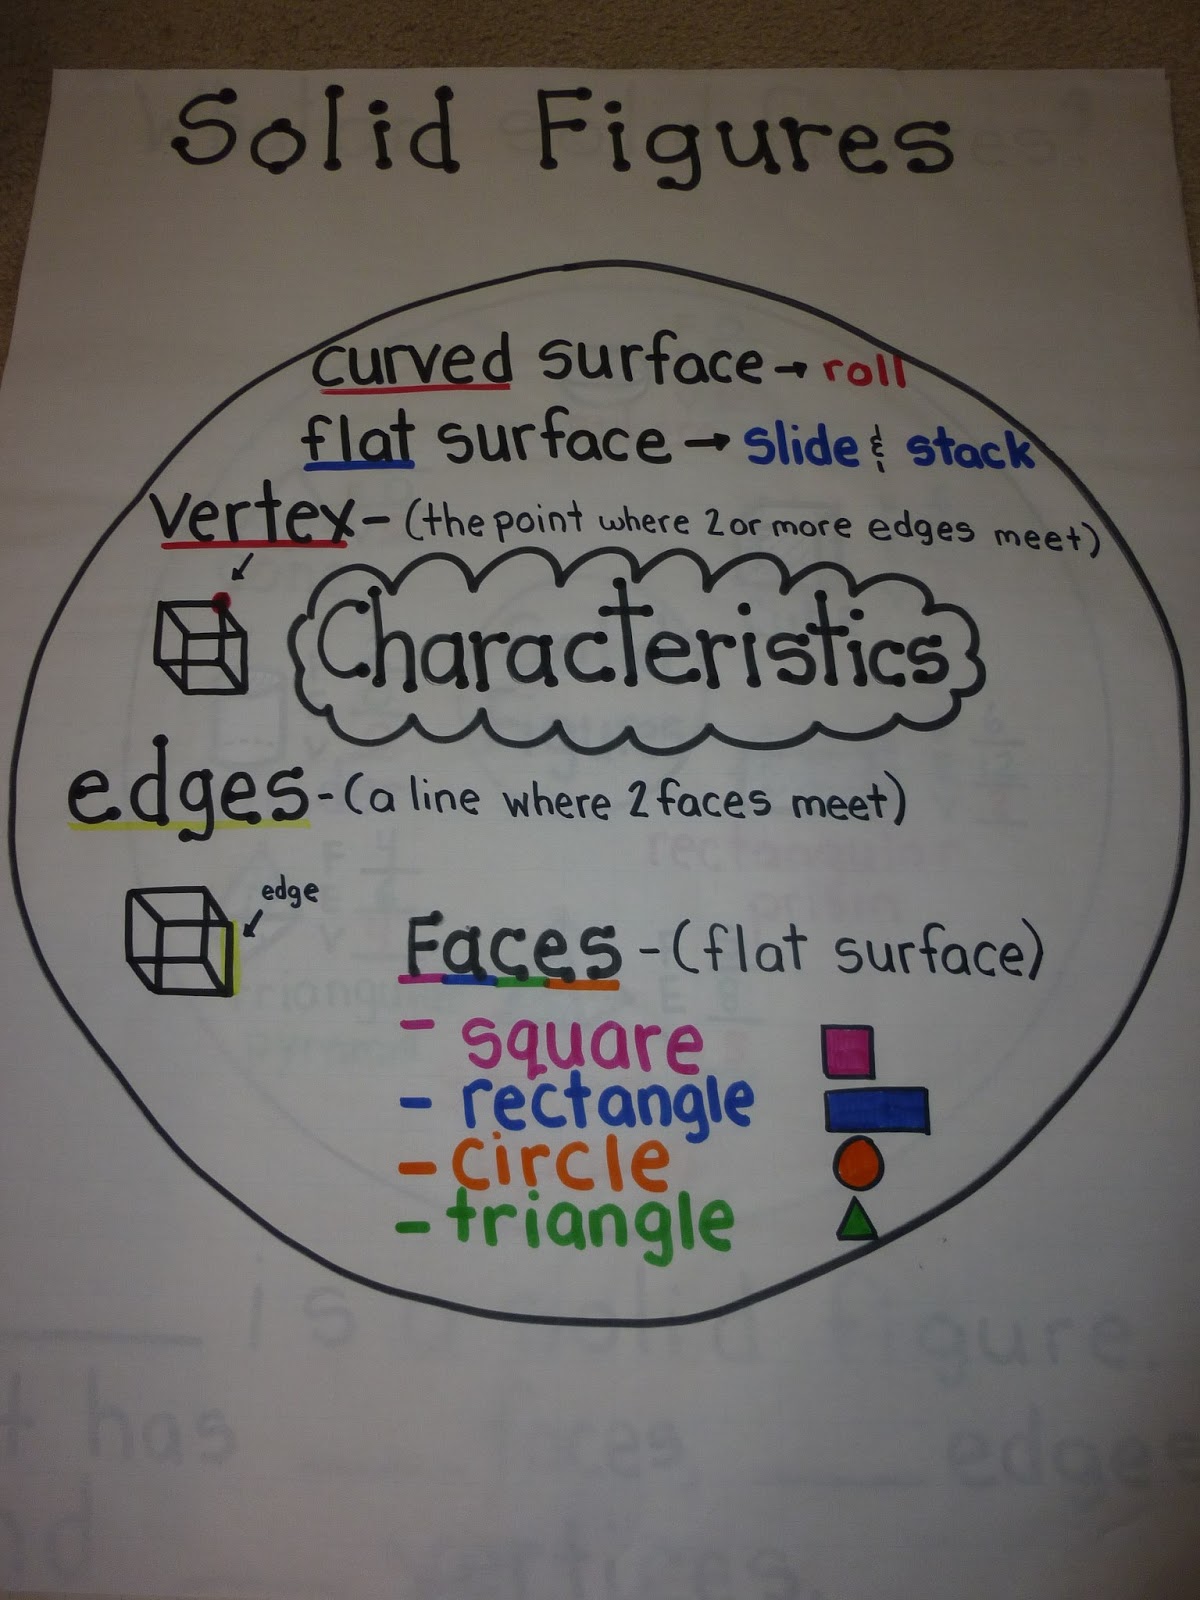 Solid Figures
curved surface → roll
flat surface → slide & stack
vertex - (the point where 2 or more edges meet)
Characteristics
edges - (a line where 2 faces meet)
edge
Faces - (flat surface)
- square
- rectangle
- circle
- triangle
is a solid figure.
has ___ faces, ___ edges